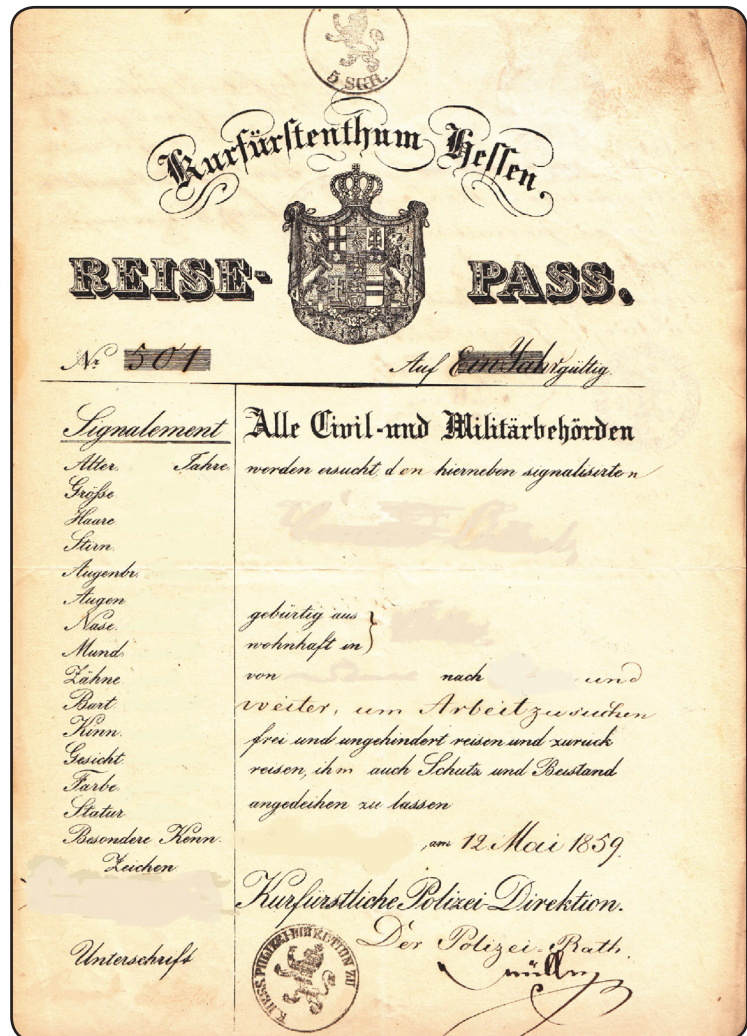 5 SGR.
Kurfürstenthum Hessen.
REISE-PASS.
Nr. 501 Auf Ein Jahr gültig.
Signalement
Alter Jahre
Größe
Haare
Stirn.
Augenbr.
Augen
Nase.
Mund.
Zähne
Bart
Kinn.
Gesicht
Farbe.
Statur
Besondere Kenn.
Zeichen
Unterschrift
Alle Civil-und Militärbehörden
werden ersucht, den hierneben signalisirten
gebürtig aus
wohnhaft in
von nach und
weiter, um Arbeit zu suchen
frei und ungehindert reisen und zurück
reisen, ihm auch Schutz und Beistand
angedeihen zu lassen
, am 12 Mai 1859.
Kurfürstliche Polizei-Direktion.
Der Polizei-Rath.
Müller
K. HESS. POLIZEI-DIREKTION ZU